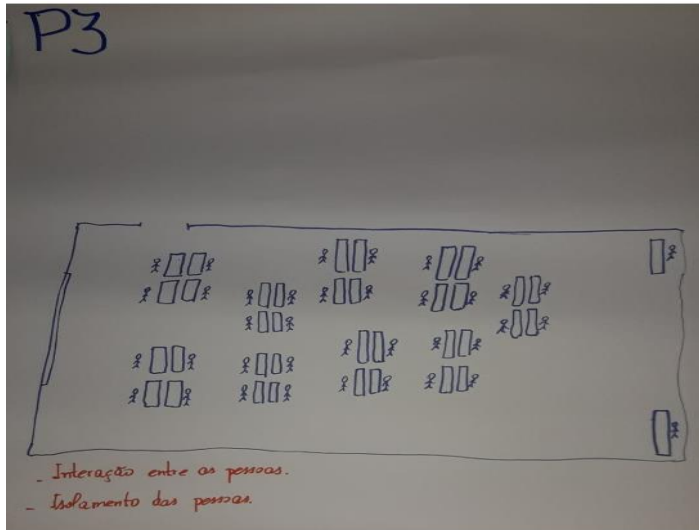 P3
- Interação entre as pessoas.
- Isolamento das pessoas.